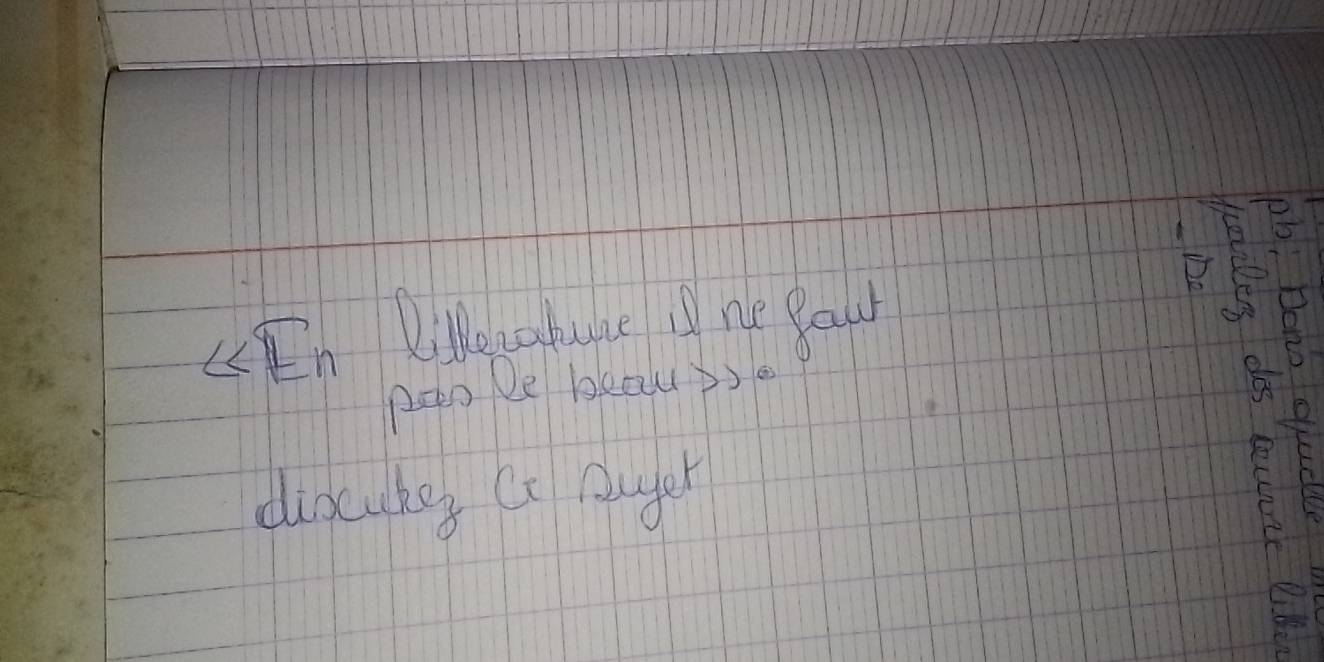 <<En litterature il ne faut
pas le beau>>.
discutez ce sujet
pb; Dans quelle
parlez des œuvre litter
- De